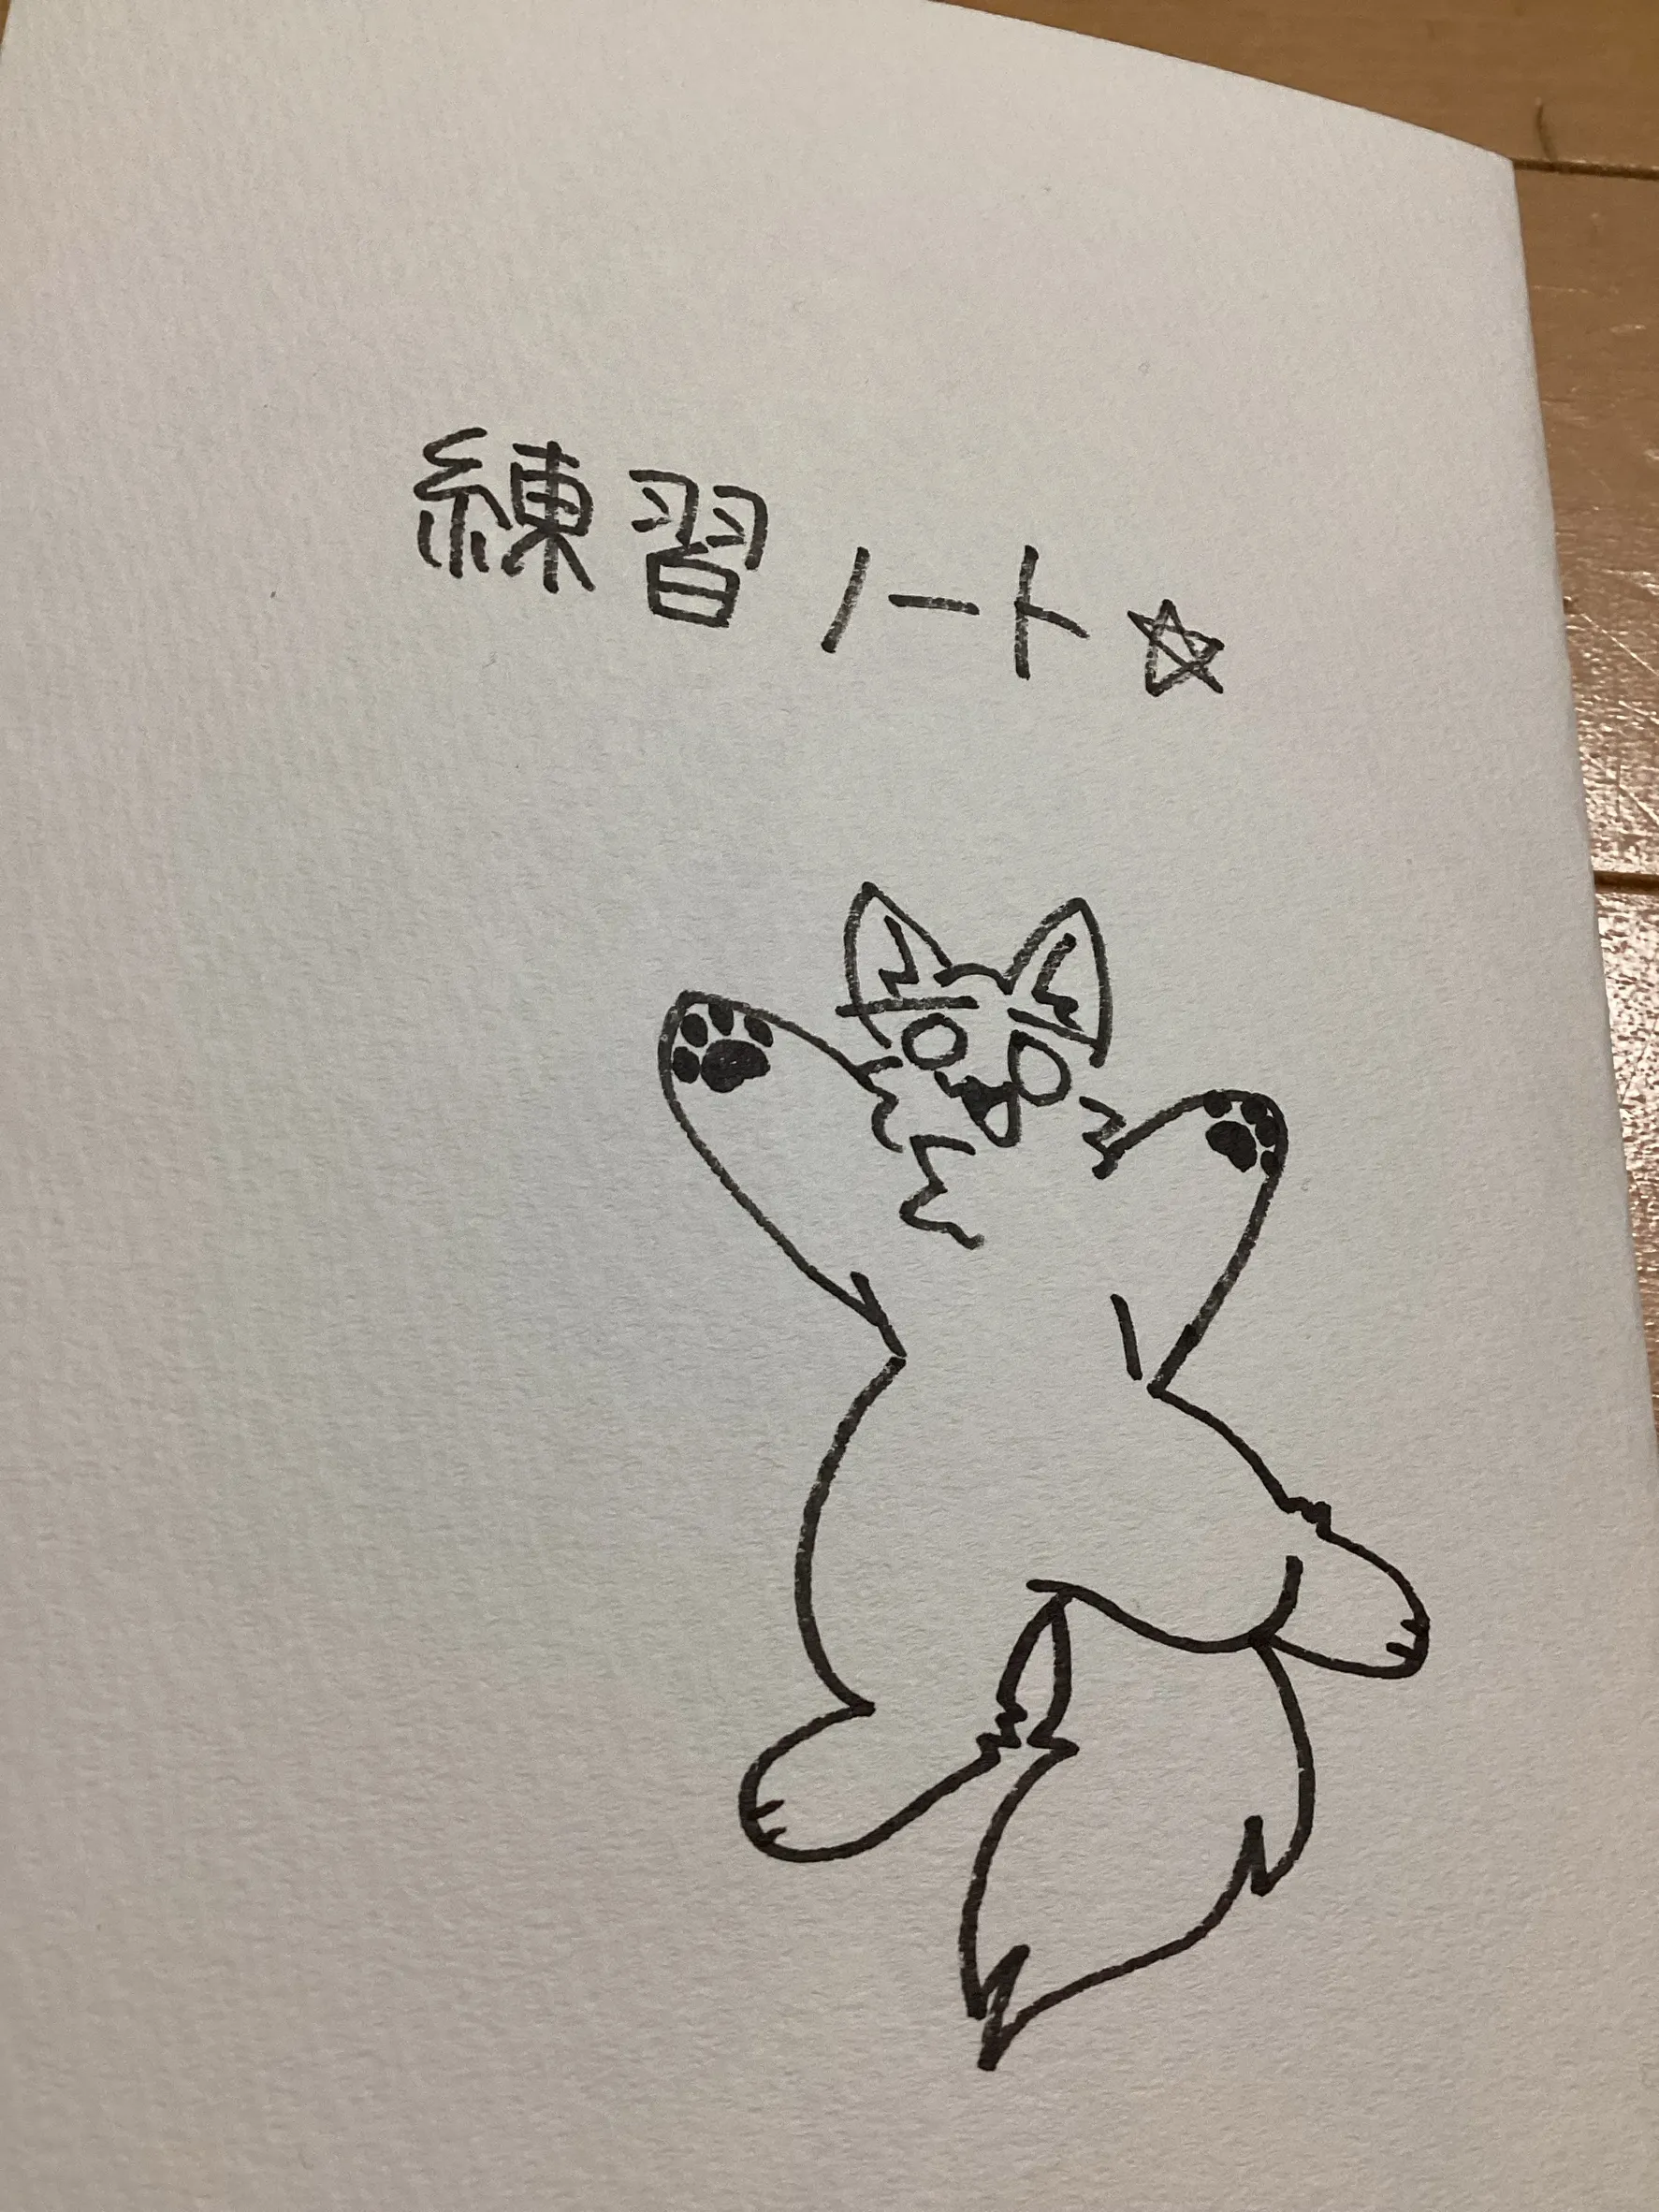 練習ノート☆